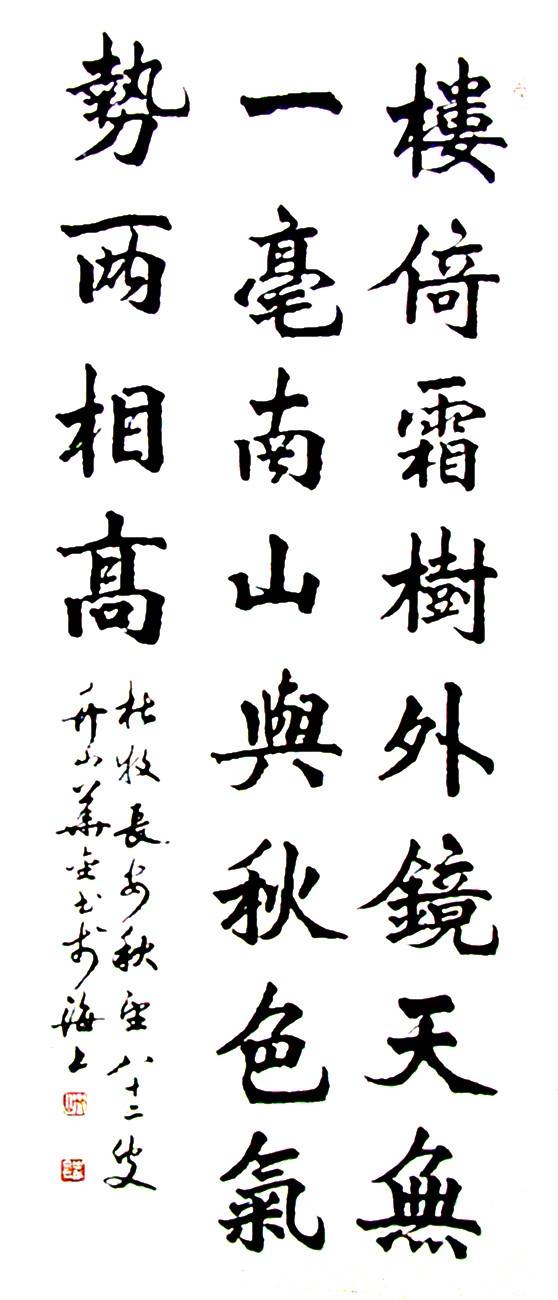 樓倚霜樹外鏡天無
一毫南山與秋色氣
勢兩相高
杜牧長安秋望八十二叟
舟山華书於海上